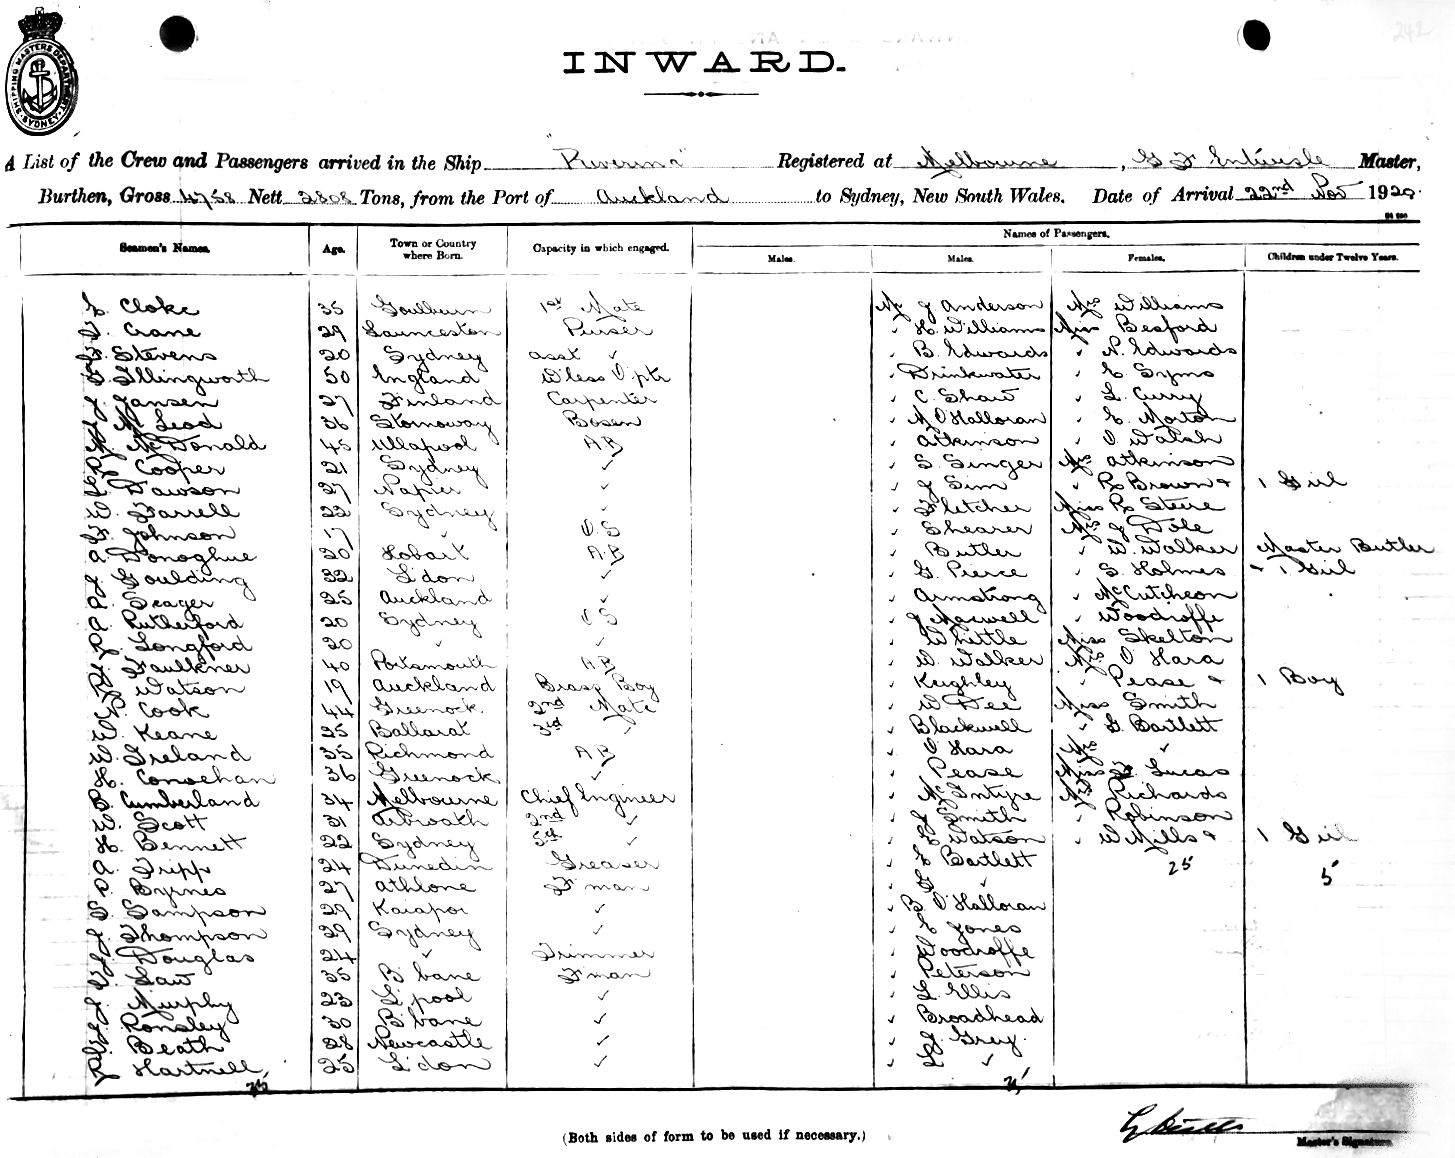 INWARD.
SHIPPING MASTERS DEPARTMENT SYDNEY
A List of the Crew and Passengers arrived in the Ship "Riverina" Registered at Melbourne, G F Entwisle Master,
Burthen, Gross 4758 Nett 2808 Tons, from the Port of Auckland to Sydney, New South Wales. Date of Arrival 22nd Nov 1920
Names of Passengers.
Seamen's Names. Age. Town or Country where Born. Capacity in which engaged. Males. Males. Females. Children under Twelve Years.
Cloke 35 Goulburn 1st Mate Mr J Anderson Mrs Williams
Crane 29 Launceston Purser " H. Williams Miss Besford
Stevens 20 Sydney asst " " B. Edwards " N. Edwards
Illingworth 50 England W'less Optr " Drinkwater " E Syms
Jansen 27 Finland Carpenter " C. Shaw " L. Curry
McLeod 36 Stornoway Bosen " M O'Halloran " E. Morton
McDonald 45 Ullapool AB " Atkinson " O Walsh
Cooper 21 Sydney " " S. Singer Mrs Atkinson
Dawson 27 Napier " " J Sim " R Brown & 1 Girl
W. Farrell 22 Sydney " " Fletcher Miss R Steire
Johnson 17 " O.S " Shearer Mrs J Dole
A. Donoghue 20 Hobart A.B " Butler " W. Walker Master Butler
J Goulding 32 L'don " " G. Pierce " S. Holmes & 1 Girl
Seager 25 Auckland " " Armstrong " McCutcheon
Rutherford 20 Sydney OS " J Maxwell " Woodroffe
Longford 20 " " " Whittle Miss Skelton
Faulkner 40 Portsmouth AB " W. Walker Mrs O'Hara
Watson 19 Auckland Brass Boy " Keighley " Pease & 1 Boy
Cook 44 Greenock 2nd Mate " W Dee Miss Smith
W. Keane 25 Ballarat 3rd " " Blackwell " G. Bartlett
W. Ireland 35 Richmond AB " O'Hara Mrs "
H. Conochan 36 Greenock " " Pease Miss Lucas
Cumberland 34 Melbourne Chief Engineer " McIntyre Mrs Richards
W. Scott 31 Arbroath 2nd " " J Smith " Robinson
H. Bennett 22 Sydney 5th " " Watson " W Mills & 1 Girl
A. Tripp 24 Dunedin Greaser " E Bartlett 25 5
Byrnes 27 Athlone F'man " "
S. Sampson 29 Kaiapoi " " B O'Halloran
Thompson 29 Sydney " " E Jones
Douglas 24 " Trimmer " Woodroffe
Law 35 B'bane F'man " Peterson
Murphy 23 L'pool " " L. Ellis
Ronsley 30 B'bane " " Broadhead
Beath 28 Newcastle " " J Grey
Hartnell 25 L'don " " L "
(Both sides of form to be used if necessary.)
Master's Signature.